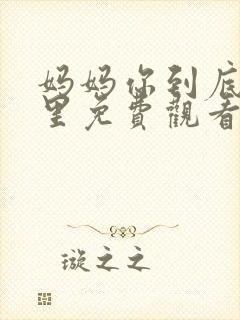 妈妈你到底
里免費觀看
璇之之